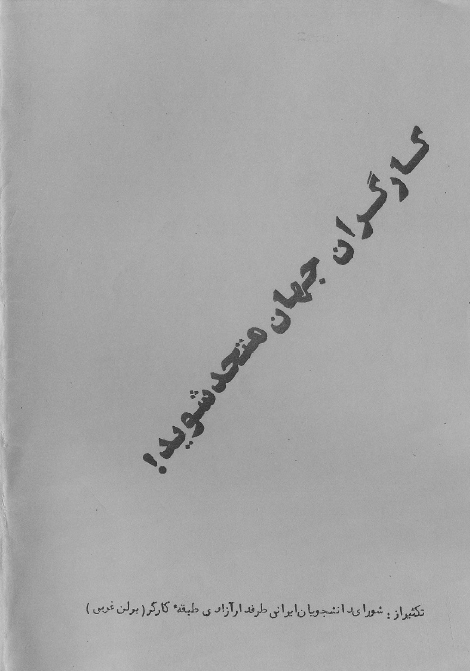 کارگران جهان متحد شوید!
تکثیر از : شورای دانشجویان ایرانی طرفدار آزادی طبقه کارگر ( برلن غربی )